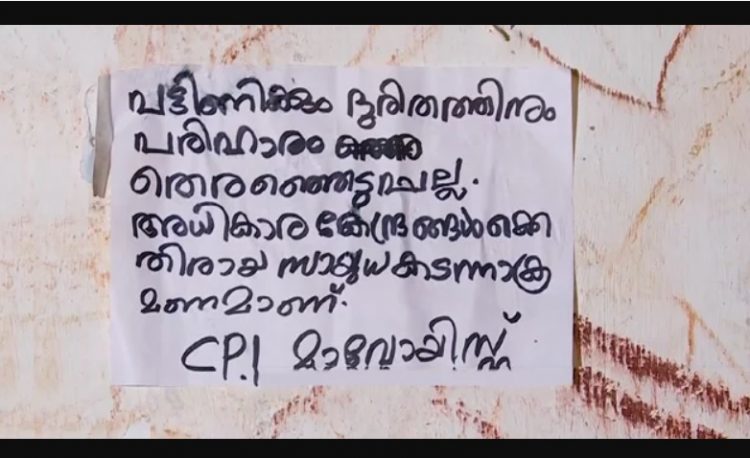 പട്ടിണിക്കും ദുരിതത്തിനും
പരിഹാരം
തെരഞ്ഞെടുപ്പല്ല.
അധികാര കേന്ദ്രങ്ങൾക്കെ
തിരായ സായുധ കടന്നാക്ര
മണമാണ്.
CP.I മാവോയിസ്റ്റ്